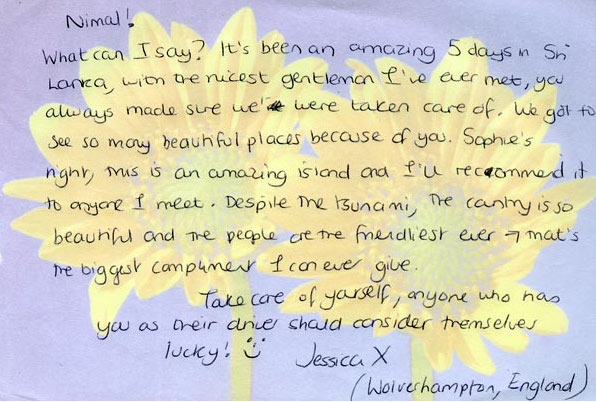 Nimal!
What can I say? It's been an amazing 5 days in Sri
Lanka, with the nicest gentleman I've ever met, you
always made sure we were taken care of. We got to
see so many beautiful places because of you. Sophie's
right, this is an amazing island and I'll recommend it
to anyone I meet. Despite the tsunami, the country is so
beautiful and the people are the friendliest ever → that's
the biggest compliment I can ever give.
Take care of yourself, anyone who has
you as their driver should consider themselves
lucky! ☺ Jessica X
(Wolverhampton, England)